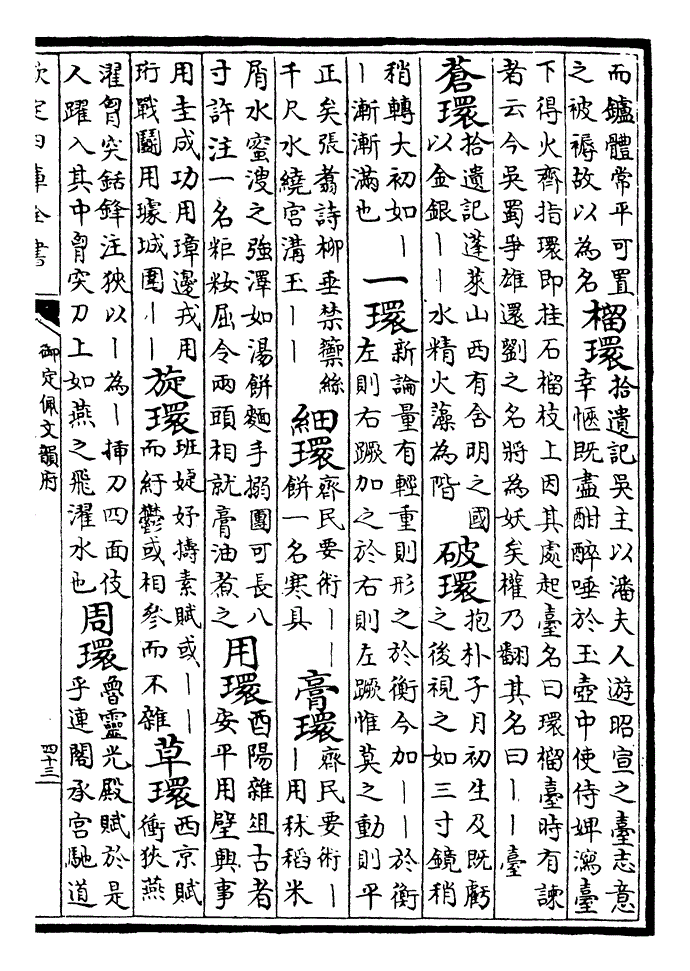 而鑪體常平可置
之被褥故以為名
榴環
拾遺記吳主以潘夫人遊昭宣之臺志意
幸愜既盡酣醉唾於玉壺中使侍婢瀉臺
下得火齊指環即挂石榴枝上因其處起臺名曰環榴臺時有諫
者云今吳蜀爭雄還劉之名將為妖矣權乃翻其名曰丨丨臺
蒼環
拾遺記蓬萊山西有含明之國
以金銀丨丨水精火藻為階
破環
抱朴子月初生及既虧
之後視之如三寸鏡稍
稍轉大初如丨
丨漸漸滿也
一環
新論量有輕重則形之於衡今加丨丨於衡
左則右蹶加之於右則左蹶惟莫之動則平
正矣張翥詩柳垂禁籞絲
千尺水繞宫溝玉丨丨
細環
齊民要術丨丨
餅一名寒具
膏環
齊民要術丨
丨用秫稻米
屑水蜜溲之強澤如湯餅麵手搦團可長八
寸許注一名粔籹屈令兩頭相就膏油煮之
用環
酉陽雜俎古者
安平用璧興事
用圭成功用璋邊戎用
珩戰鬬用璩城圍丨丨
旋環
班婕妤擣素賦或丨丨
而紆鬱或相參而不雜
草環
西京賦
衝狹燕
濯胷突銛鋒注狹以丨為丨挿刀四面伎
人躍入其中胷突刀上如燕之飛濯水也
周環
魯靈光殿賦於是
乎連閣承宫馳道
欽定四庫全書
御定佩文韻府
四十三